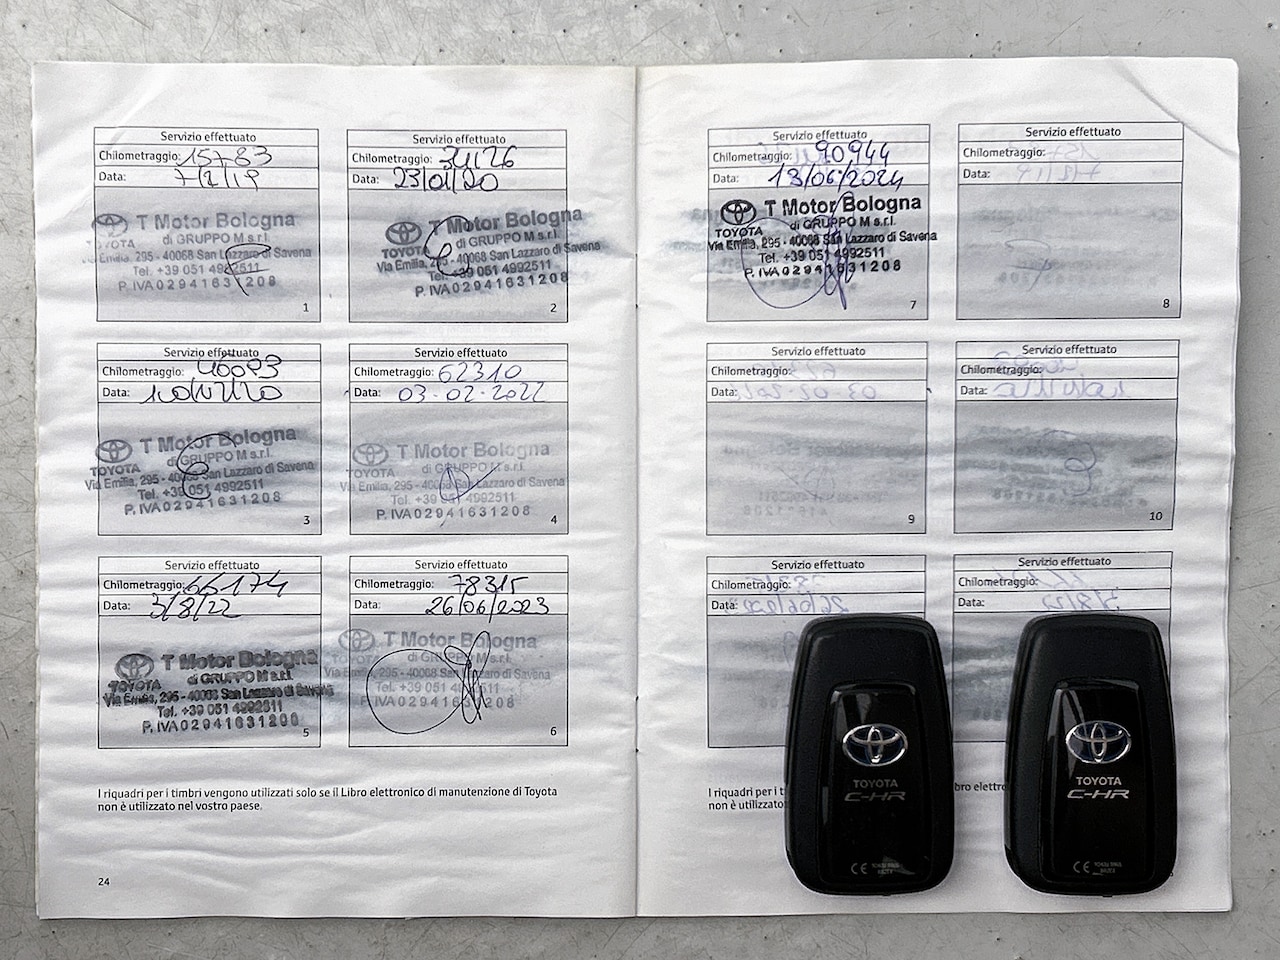 Servizio effettuato
Chilometraggio: 15783
Data: 7/2/19
TOYOTA
T Motor Bologna
di GRUPPO M s.r.l.
Via Emilia, 295 - 40068 San Lazzaro di Savena
Tel. +39 051 4992511
P. IVA 02941631208
1
Servizio effettuato
Chilometraggio: 34126
Data: 23/01/20
TOYOTA
T Motor Bologna
di GRUPPO M s.r.l.
Via Emilia, 295 - 40068 San Lazzaro di Savena
Tel. +39 051 4992511
P. IVA 02941631208
2
Servizio effettuato
Chilometraggio: 46093
Data: 10/12/20
TOYOTA
T Motor Bologna
di GRUPPO M s.r.l.
Via Emilia, 295 - 40068 San Lazzaro di Savena
Tel. +39 051 4992511
P. IVA 02941631208
3
Servizio effettuato
Chilometraggio: 62310
Data: 03-02-2022
TOYOTA
T Motor Bologna
di GRUPPO M s.r.l.
Via Emilia, 295 - 40068 San Lazzaro di Savena
Tel. +39 051 4992511
P. IVA 02941631208
4
Servizio effettuato
Chilometraggio: 66174
Data: 3/8/22
TOYOTA
T Motor Bologna
di GRUPPO M s.r.l.
Via Emilia, 295 - 40068 San Lazzaro di Savena
Tel. +39 051 4992511
P. IVA 02941631208
5
Servizio effettuato
Chilometraggio: 78315
Data: 26/06/2023
TOYOTA
T Motor Bologna
di GRUPPO M s.r.l.
Via Emilia, 295 - 40068 San Lazzaro di Savena
Tel. +39 051 4992511
P. IVA 02941631208
6
I riquadri per i timbri vengono utilizzati solo se il Libro elettronico di manutenzione di Toyota
non è utilizzato nel vostro paese.
24
Servizio effettuato
Chilometraggio: 90944
Data: 18/06/2024
TOYOTA
T Motor Bologna
di GRUPPO M s.r.l.
Via Emilia, 295 - 40068 San Lazzaro di Savena
Tel. +39 051 4992511
P. IVA 02941631208
7
Servizio effettuato
Chilometraggio:
Data:
8
Servizio effettuato
Chilometraggio:
Data:
9
Servizio effettuato
Chilometraggio:
Data:
10
Servizio effettuato
Chilometraggio:
Data:
Servizio effettuato
Chilometraggio:
Data:
I riquadri per i
non è utilizzato
TOYOTA
C-HR
CE
TOYOTA
C-HR
CE